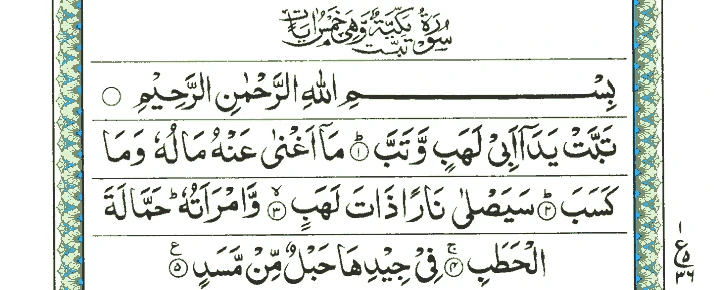 سُوْرَةُ تَبَّتْ مَكِّيَّةٌ وَّهِيَ خَمْسُ اٰيَاتٍ
بِسْــــــمِ اللّٰهِ الرَّحْمٰنِ الرَّحِيْمِ ۝
تَبَّتْ يَدَآ اَبِيْ لَهَبٍ وَّتَبَّ ؕ﴿۱﴾ مَاۤ اَغْنٰى عَنْهُ مَالُهٗ وَمَا
كَسَبَ ؕ﴿۲﴾ سَيَصْلٰى نَارًا ذَاتَ لَهَبٍ ۙ﴿۳﴾ وَّامْرَاَتُهٗ ؕ حَمَّالَةَ
الْحَطَبِ ۚ﴿۴﴾ فِيْ جِيْدِهَا حَبْلٌ مِّنْ مَّسَدٍ ﴿۵﴾ ع
۱
ع ۵
۳۶